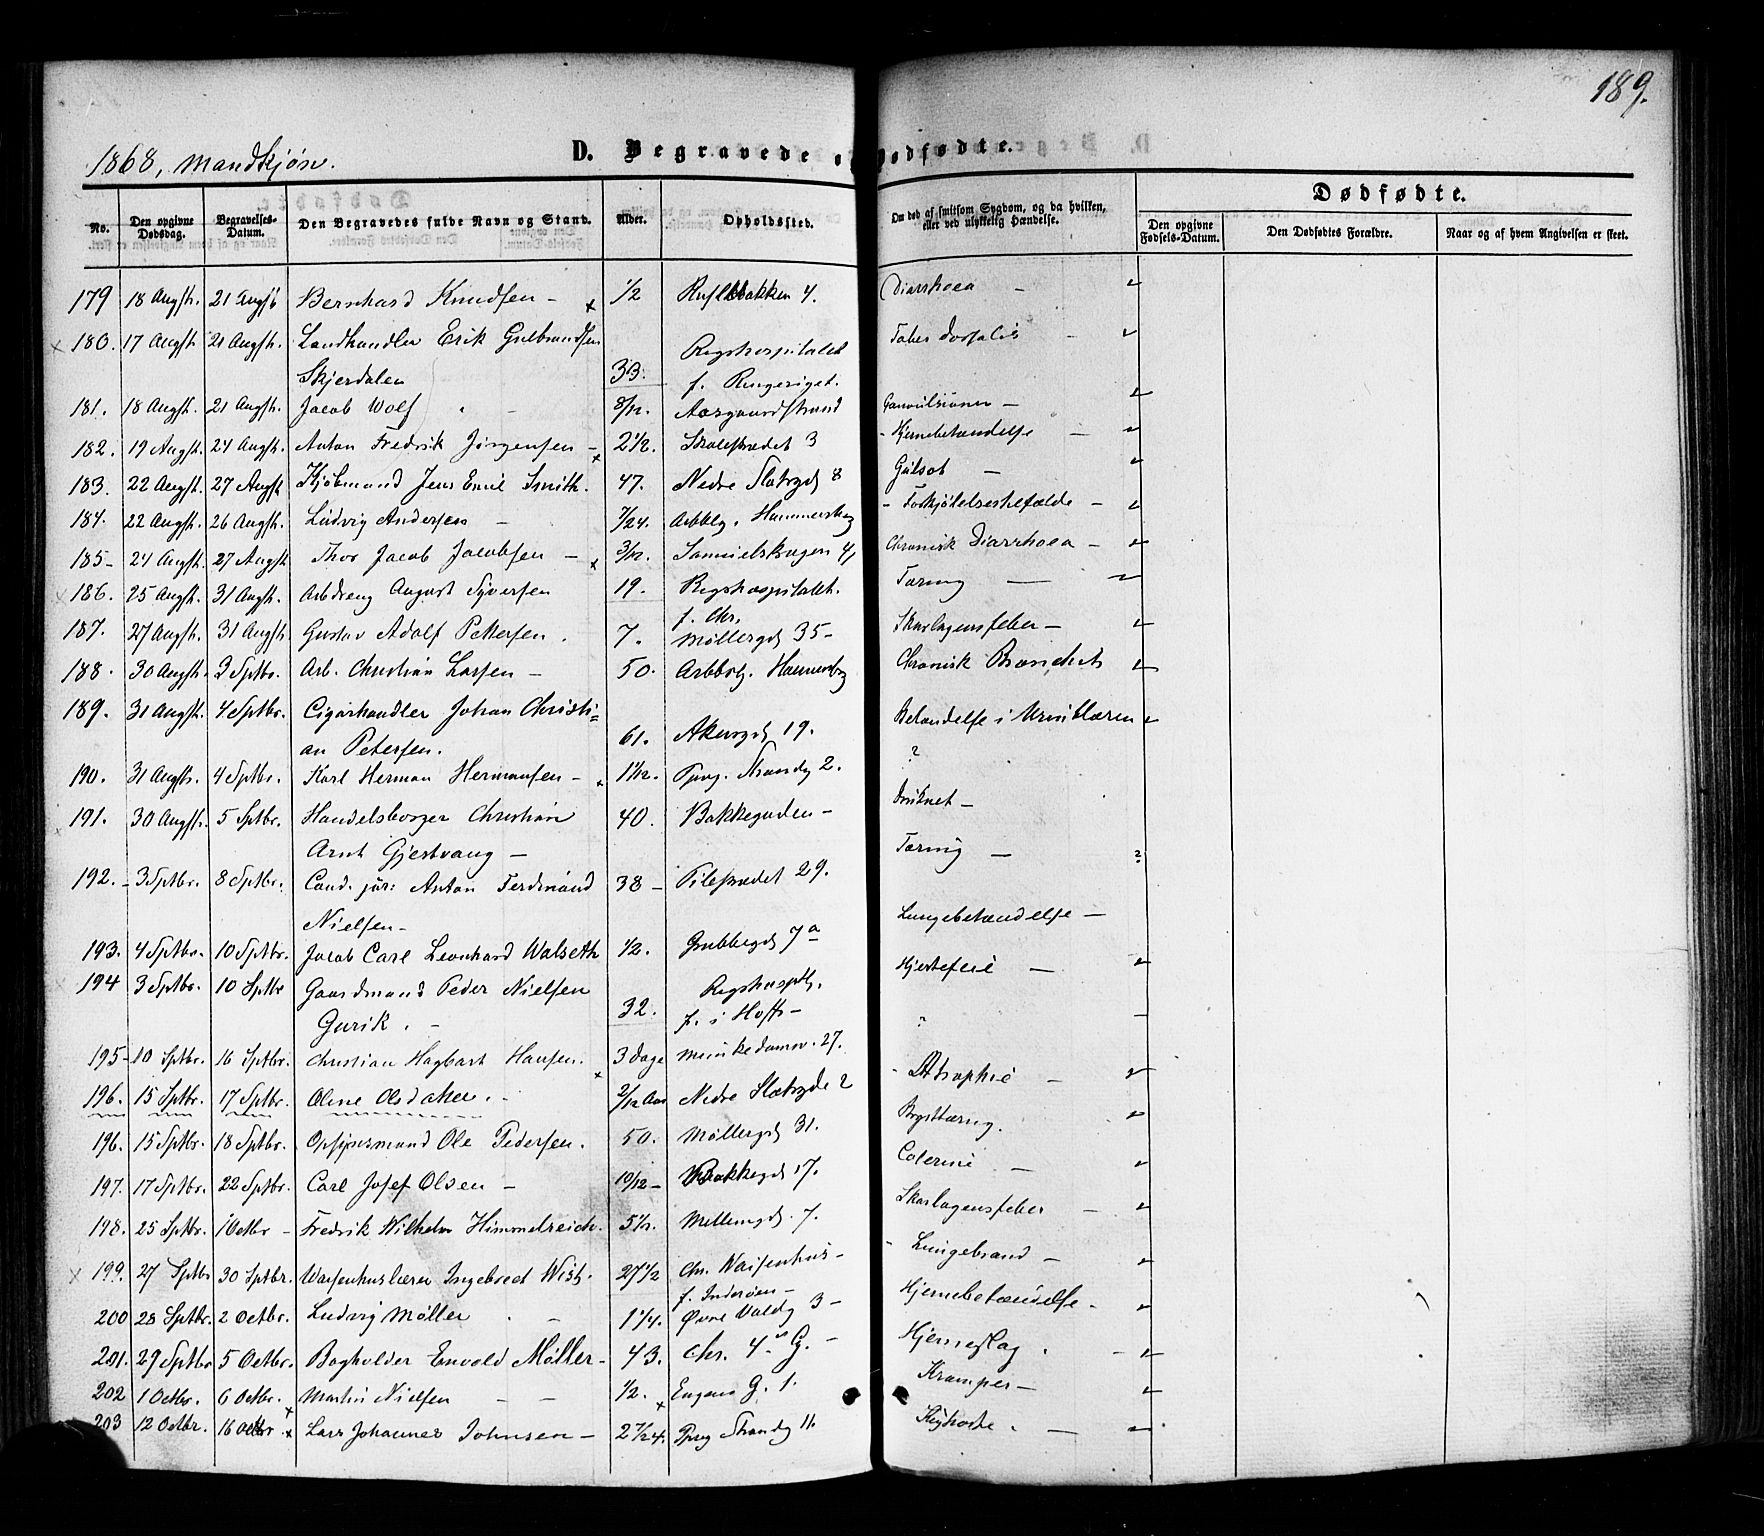 189.
1868, Mandkjøn.
D. Begravede o Dødfødte.
No. Den opgivne Dødsdag. Begravelses-Datum. Den Begravedes fulde Navn og Stand. Alder. Opholdssted. Om død af smitsom Sygdom, og da hvilken, eller ved ulykkelig Hændelse. Dødfødte. Den opgivne Fødsels-Datum. Den Dødfødtes Forældre. Naar og af hvem Angivelsen er skeet.
179 18 Augst. 21 Augst Bernhard Knudsen - 1/2 bakken 4. Diarrhoea -
180. 17 Augst. 21 Augst. Landhandler Erik Gulbrandsen Tabes dorsalis -
Skjerdalen 33. Rigshospitalet
f. Ringeriget.
181. 18 Augst. 21 Augst. Jacob Wolf - 8/12. Aasgaardstrand Convulsioner -
182. 19 Augst. 24 Augst. Anton Fredrik Jørgensen - 2 1/2. Skolestrædet 3 - Hjernebetændelse -
183. 22 Augst. 27 Augst Kjøbmand Jens Emil Smith. 47. Nedre Slotsgd 8 Gulsot -
184. 22 Augst. 26 Augst. Ludvig Andersen - 7/24. Arbblg. Hammersbg - Forkjølelsestilfælde -
185- 24 Augst. 27 Augst Thor Jacob Jacobsen - 3/12. Samuelskragen 4 Chronisk Diarrhoea -
186. 25 Augst. 31 Augst. Arbdreng August Syversen 19. Rigshospitalet. Tæring -
f. Chr.
187. 27 Augst. 31 Augst. Gustav Adolf Pettersen. 7. Møllergd 35- Skarlagensfeber -
188. 30 Augst. 3 Sptbr. Arb. Christian Larsen - 50. Arbbolg. Hammersbg Chronisk Bronchit
189. 31 Augst. 4 Sptbr. Cigarhandler Johan Christi= Betændelse i Urinblæren
an Petersen. 61. Akersgd 19.
190. 31 Augst. 4 Sptbr. Karl Herman Hermansen - 1 1/12. Strandg 2. ?
191. 30 Augst. 5 Sptbr. Handelsborger Christian 40. Bakkegaden - Druknet -
Arnt Gjestvang -
192. - 3 Sptbr. 8 Sptbr. Cand. jur: Anton Ferdinand 38 - Pilestrædet 29. Tæring - ?
Nielsen -
193. 4 Sptbr. 10 Sptbr. Jacob Carl Leonhard Walseth 1/2. Grubbegd 7a Lungebetændelse -
194 3 Sptbr. 10 Sptbr Gaardmand Peder Nielsen Rigshosptl. Hjertefeil -
Gurik. - 32. f. i Hoff -
195- 10 Sptbr. 16 Sptbr. Christian Hagbart Hansen. 3 dage Munkedamsv. 27. ?
196. 15 Sptbr. 17 Sptbr. Oline Olsdatter. - 2/12 Aar Nedre Slotsgde 2 - Atrophie -
196. 15 Sptbr. 18 Sptbr. Opsynsmand Ole Pedersen. 50. Møllergd 31. Brysttæring.
197. 17 Sptbr. 22 Sptbr. Carl Josef Olsen - 10/12 - Bakkegd 17. Colerine -
198. 25 Sptbr. 1 Octbr - Fredrik Wilhelm Himmelreich. 5 1/2. Mellemgd. 7. Skarlagensfeber -
199. 27 Sptbr 30 Sptbr. Waisenhuslærer Ingebret Wist. 27 1/2 Chr. Waisenhus - - Lungebrand -
f. Inderøen -
200 28 Sptbr. 2 Octbr. Ludvig Møller - 1 1/4. Øvre Voldg 3 - Hjernebetændelse -
201. 29 Sptbr 5 Octbr. Bogholder Enevold Møller - 43. Chr. 4. G. - Hjerneslag.
202 1 Octbr. 6 Octbr. Martin Nielsen - - 1/2. Engens G. 1. Kramper -
203 12 Octbr. 16 Octbr Lars Johannes Johnsen - 2 7/24. Strandg 11. Kighoste. -